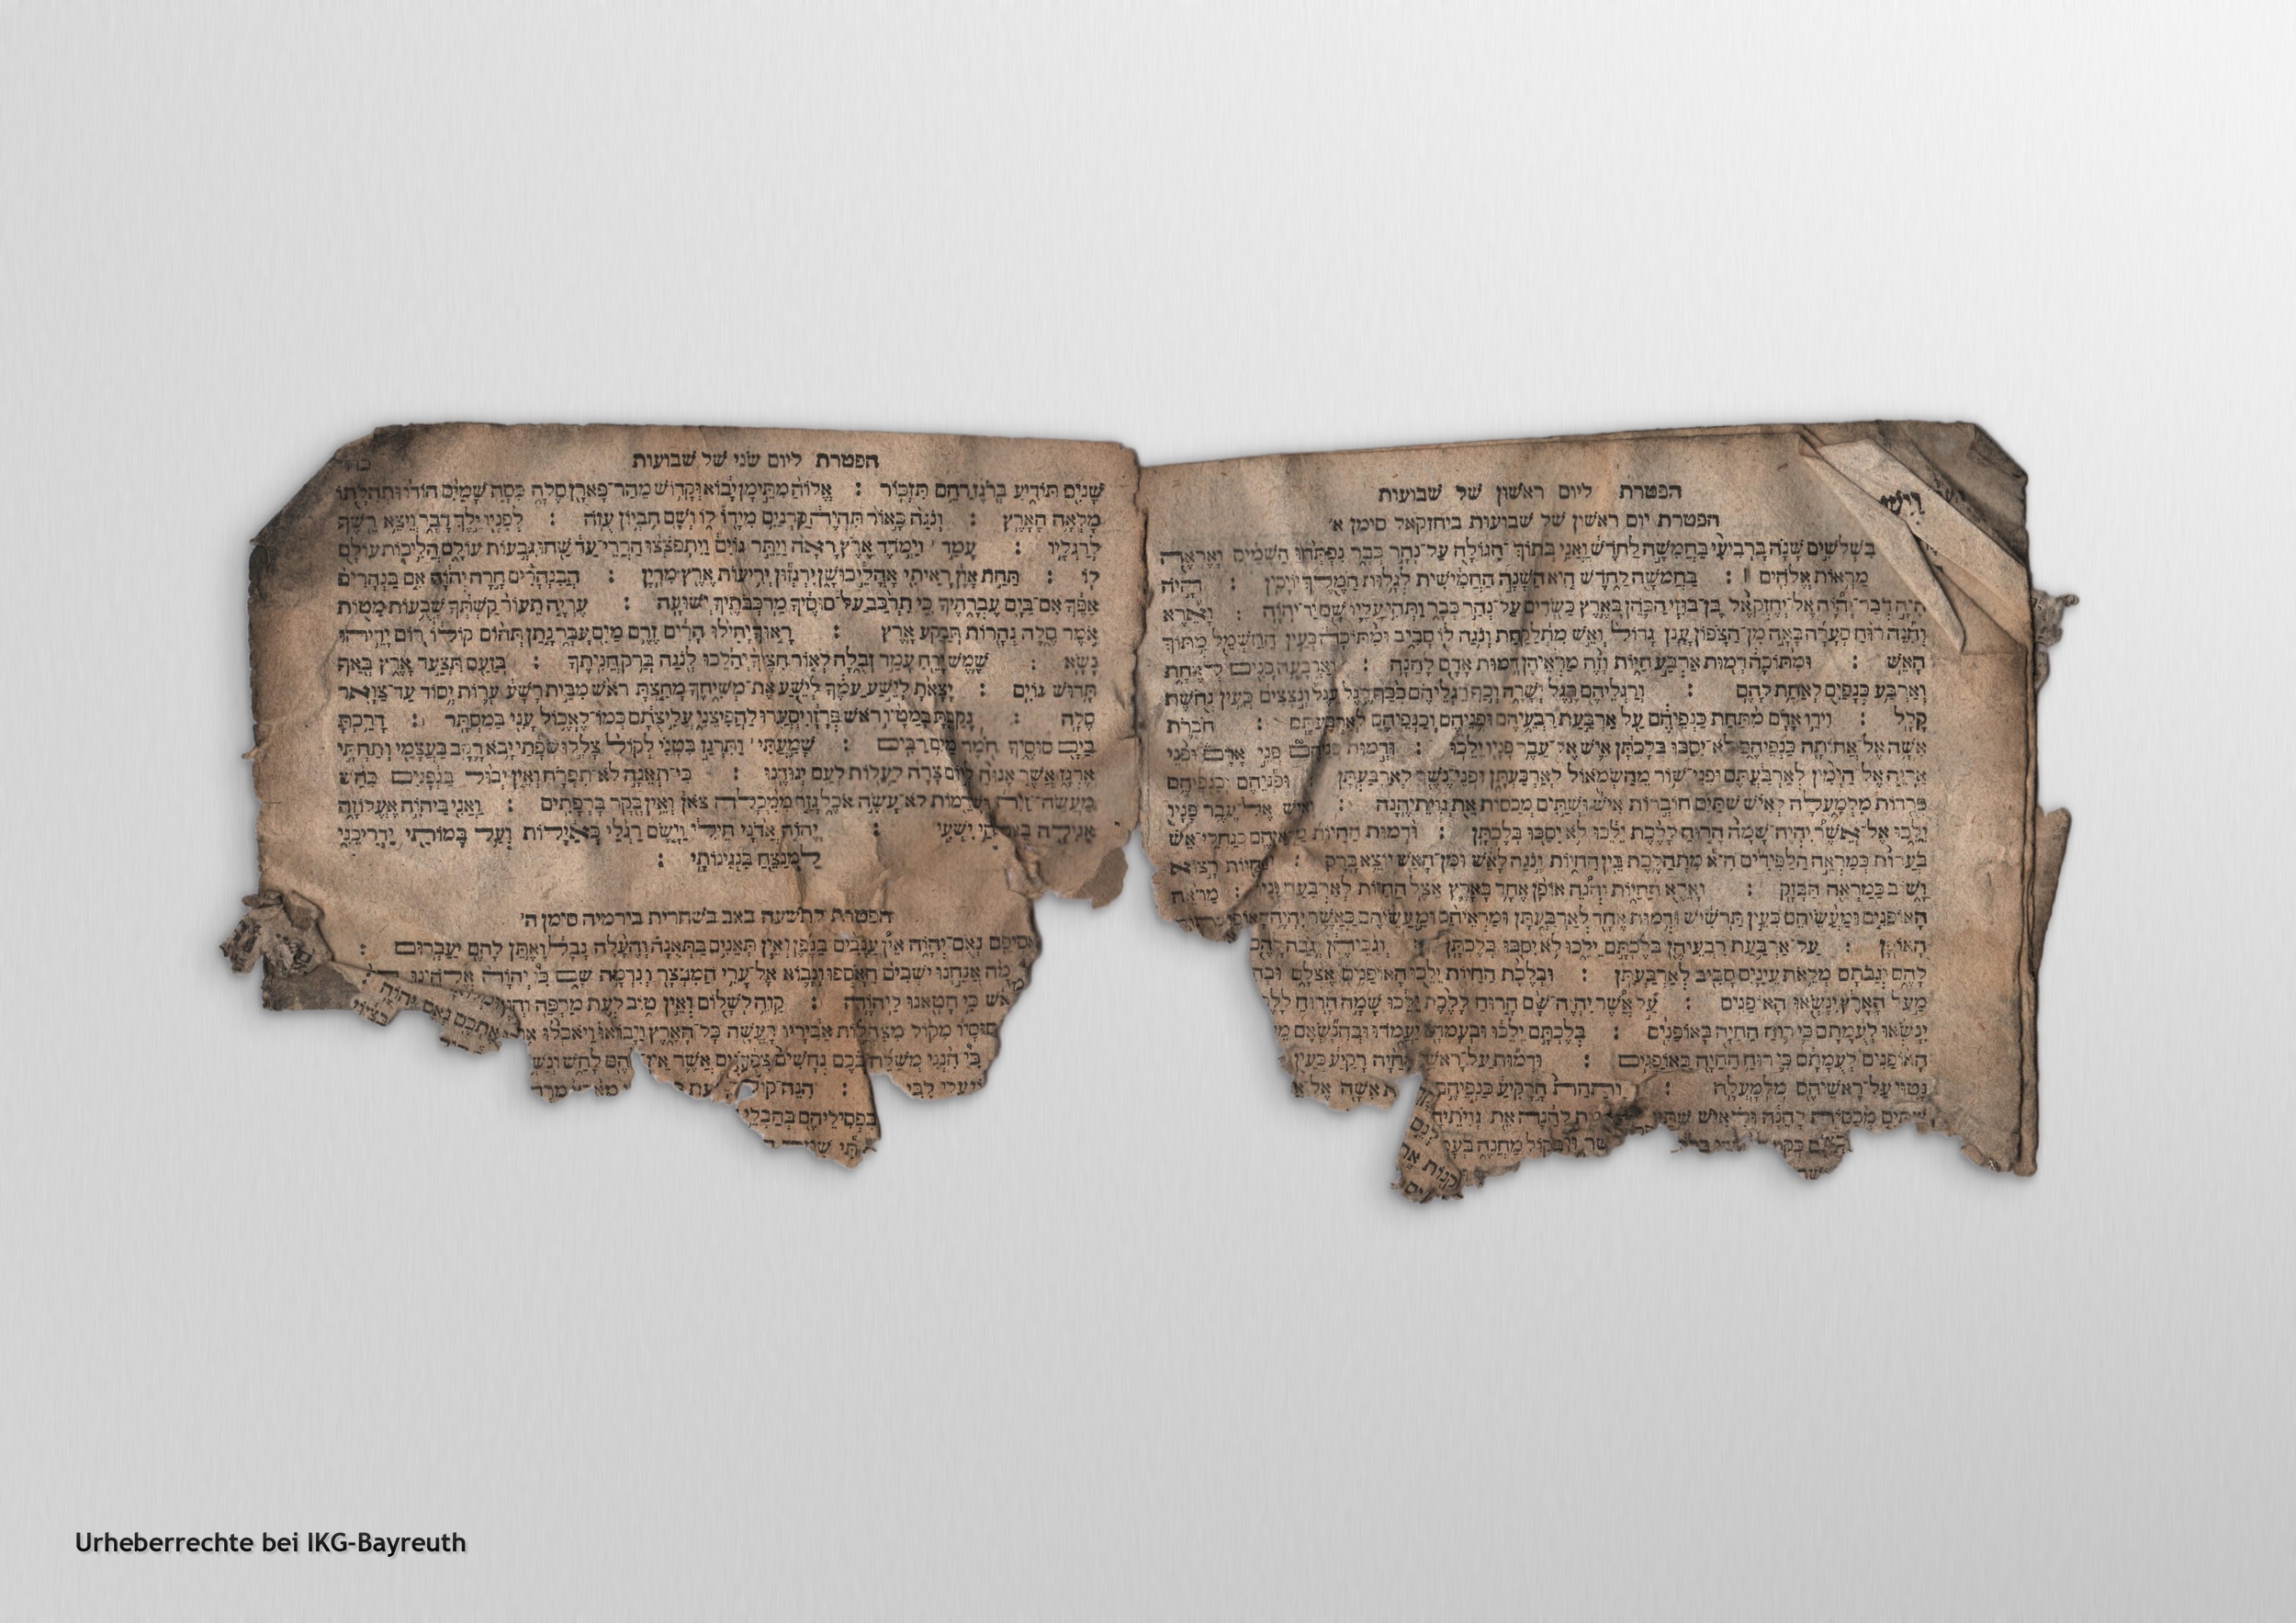 הפטרת ליום ראשון של שבועות
הפטרת יום ראשון של שבועות ביחזקאל סימן א׳
בִּשְׁלֹשִׁים שָׁנָה בָּרְבִיעִי בַּחֲמִשָּׁה לַחֹדֶשׁ וַאֲנִי בְתוֹךְ־הַגּוֹלָה עַל־נְהַר כְּבָר נִפְתְּחוּ הַשָּׁמַיִם וָאֶרְאֶה
מַרְאוֹת אֱלֹהִים : בַּחֲמִשָּׁה לַחֹדֶשׁ הִיא הַשָּׁנָה הַחֲמִישִׁית לְגָלוּת הַמֶּלֶךְ יוֹיָכִין : הָיֹה
הָיָה דְבַר־יְהוָה אֶל־יְחֶזְקֵאל בֶּן־בּוּזִי הַכֹּהֵן בְּאֶרֶץ כַּשְׂדִּים עַל־נְהַר כְּבָר וַתְּהִי עָלָיו שָׁם יַד־יְהוָה : וָאֵרֶא
וְהִנֵּה רוּחַ סְעָרָה בָּאָה מִן־הַצָּפוֹן עָנָן גָּדוֹל וְאֵשׁ מִתְלַקַּחַת וְנֹגַהּ לוֹ סָבִיב וּמִתּוֹכָהּ כְּעֵין הַחַשְׁמַל מִתּוֹךְ
הָאֵשׁ : וּמִתּוֹכָהּ דְּמוּת אַרְבַּע חַיּוֹת וְזֶה מַרְאֵיהֶן דְּמוּת אָדָם לָהֵנָּה : וְאַרְבָּעָה פָנִים לְאֶחָת
וְאַרְבַּע כְּנָפַיִם לְאַחַת לָהֶם : וְרַגְלֵיהֶם רֶגֶל יְשָׁרָה וְכַף רַגְלֵיהֶם כְּכַף רֶגֶל עֵגֶל וְנֹצְצִים כְּעֵין נְחֹשֶׁת
קָלָל : וִידֵי אָדָם מִתַּחַת כַּנְפֵיהֶם עַל אַרְבַּעַת רִבְעֵיהֶם וּפְנֵיהֶם וְכַנְפֵיהֶם לְאַרְבַּעְתָּם : חֹבְרֹת
אִשָּׁה אֶל־אֲחוֹתָהּ כַּנְפֵיהֶם לֹא־יִסַּבּוּ בְלֶכְתָּן אִישׁ אֶל־עֵבֶר פָּנָיו יֵלֵכוּ : וּדְמוּת פְּנֵיהֶם פְּנֵי אָדָם וּפְנֵי
אַרְיֵה אֶל־הַיָּמִין לְאַרְבַּעְתָּם וּפְנֵי־שׁוֹר מֵהַשְּׂמֹאול לְאַרְבַּעְתָּן וּפְנֵי־נֶשֶׁר לְאַרְבַּעְתָּן : וּפְנֵיהֶם וְכַנְפֵיהֶם
פְּרֻדוֹת מִלְמָעְלָה לְאִישׁ שְׁתַּיִם חוֹבְרוֹת אִישׁ וּשְׁתַּיִם מְכַסּוֹת אֵת גְּוִיֹּתֵיהֶנָה : וְאִישׁ אֶל־עֵבֶר פָּנָיו
יֵלֵכוּ אֶל־אֲשֶׁר יִהְיֶה־שָׁמָּה הָרוּחַ לָלֶכֶת יֵלֵכוּ לֹא יִסַּבּוּ בְּלֶכְתָּן : וּדְמוּת הַחַיּוֹת מַרְאֵיהֶם כְּגַחֲלֵי־אֵשׁ
בֹּעֲרוֹת כְּמַרְאֵה הַלַּפִּידִים הִיא מִתְהַלֶּכֶת בֵּין הַחַיּוֹת וְנֹגַהּ לָאֵשׁ וּמִן־הָאֵשׁ יוֹצֵא בָרָק : וְהַחַיּוֹת רָצוֹא
וָשׁוֹב כְּמַרְאֵה הַבָּזָק : וָאֵרֶא הַחַיּוֹת וְהִנֵּה אוֹפַן אֶחָד בָּאָרֶץ אֵצֶל הַחַיּוֹת לְאַרְבַּעַת פָּנָיו : מַרְאֵה
הָאוֹפַנִּים וּמַעֲשֵׂיהֶם כְּעֵין תַּרְשִׁישׁ וּדְמוּת אֶחָד לְאַרְבַּעְתָּן וּמַרְאֵיהֶם וּמַעֲשֵׂיהֶם כַּאֲשֶׁר יִהְיֶה הָאוֹפַן
הָאוֹפָן : עַל־אַרְבַּעַת רִבְעֵיהֶן בְּלֶכְתָּם יֵלֵכוּ לֹא יִסַּבּוּ בְּלֶכְתָּן : וְגַבֵּיהֶן וְגֹבַהּ לָהֶם
לָהֶם וְגַבֹּתָם מְלֵאֹת עֵינַיִם סָבִיב לְאַרְבַּעְתָּן : וּבְלֶכֶת הַחַיּוֹת יֵלְכוּ הָאוֹפַנִּים אֶצְלָם
מֵעַל הָאָרֶץ יִנָּשְׂאוּ הָאוֹפַנִּים : עַל אֲשֶׁר יִהְיֶה־שָּׁם הָרוּחַ לָלֶכֶת יֵלֵכוּ שָׁמָּה הָרוּחַ
יִנָּשְׂאוּ לְעֻמָּתָם כִּי רוּחַ הַחַיָּה בָּאוֹפַנִּים : בְּלֶכְתָּם יֵלֵכוּ וּבְעָמְדָם יַעֲמֹדוּ וּבְהִנָּשְׂאָם
הָאוֹפַנִּים לְעֻמָּתָם כִּי רוּחַ הַחַיָּה בָּאוֹפַנִּים : וּדְמוּת עַל־רָאשֵׁי הַחַיָּה רָקִיעַ כְּעֵין
נָטוּי עַל־רָאשֵׁיהֶם מִלְמָעְלָה : וְתַחַת הָרָקִיעַ כַּנְפֵיהֶם אִשָּׁה אֶל
שְׁתַּיִם מְכַסּוֹת לָהֵנָּה וּלְאִישׁ לָהֵנָּה אֵת גְּוִיֹּתֵיהֶם
כְּקוֹל מַחֲנֶה
הפטרת ליום שני של שבועות
שָׁנִים תּוֹדִיעַ בְּרֹגֶז רַחֵם תִּזְכּוֹר : אֱלוֹהַּ מִתֵּימָן יָבוֹא וְקָדוֹשׁ מֵהַר־פָּארָן סֶלָה כִּסָּה שָׁמַיִם הוֹדוֹ וּתְהִלָּתוֹ
מָלְאָה הָאָרֶץ : וְנֹגַהּ כָּאוֹר תִּהְיֶה קַרְנַיִם מִיָּדוֹ לוֹ וְשָׁם חֶבְיוֹן עֻזֹּה : לְפָנָיו יֵלֶךְ דָּבֶר וְיֵצֵא רֶשֶׁף
לְרַגְלָיו : עָמַד וַיְמֹדֶד אֶרֶץ רָאָה וַיַּתֵּר גּוֹיִם וַיִּתְפֹּצְצוּ הַרְרֵי־עַד שַׁחוּ גִּבְעוֹת עוֹלָם הֲלִיכוֹת עוֹלָם
לוֹ : תַּחַת אָוֶן רָאִיתִי אָהֳלֵי כוּשָׁן יִרְגְּזוּן יְרִיעוֹת אֶרֶץ מִדְיָן : הֲבִנְהָרִים חָרָה יְהוָה אִם בַּנְּהָרִים
אַפֶּךָ אִם־בַּיָּם עֶבְרָתֶךָ כִּי תִרְכַּב עַל־סוּסֶיךָ מַרְכְּבֹתֶיךָ יְשׁוּעָה : עֶרְיָה תֵעוֹר קַשְׁתֶּךָ שְׁבֻעוֹת מַטּוֹת
אֹמֶר סֶלָה נְהָרוֹת תְּבַקַּע אָרֶץ : רָאוּךָ יָחִילוּ הָרִים זֶרֶם מַיִם עָבָר נָתַן תְּהוֹם קוֹלוֹ רוֹם יָדֵיהוּ
נָשָׂא : שֶׁמֶשׁ יָרֵחַ עָמַד זְבֻלָה לְאוֹר חִצֶּיךָ יְהַלֵּכוּ לְנֹגַהּ בְּרַק חֲנִיתֶךָ : בְּזַעַם תִּצְעַד אָרֶץ בְּאַף
תָּדוּשׁ גּוֹיִם : יָצָאתָ לְיֵשַׁע עַמֶּךָ לְיֵשַׁע אֶת־מְשִׁיחֶךָ מָחַצְתָּ רֹאשׁ מִבֵּית רָשָׁע עָרוֹת יְסוֹד עַד־צַוָּאר
סֶלָה : נָקַבְתָּ בְמַטָּיו רֹאשׁ פְּרָזָו יִסְעֲרוּ לַהֲפִיצֵנִי עֲלִיצֻתָם כְּמוֹ־לֶאֱכֹל עָנִי בַּמִּסְתָּר : דָּרַכְתָּ
בַיָּם סוּסֶיךָ חֹמֶר מַיִם רַבִּים : שָׁמַעְתִּי וַתִּרְגַּז בִּטְנִי לְקוֹל צָלֲלוּ שְׂפָתַי יָבוֹא רָקָב בַּעֲצָמַי וְתַחְתַּי
אֶרְגָּז אֲשֶׁר אָנוּחַ לְיוֹם צָרָה לַעֲלוֹת לְעַם יְגוּדֶנּוּ : כִּי־תְאֵנָה לֹא־תִפְרָח וְאֵין יְבוּל בַּגְּפָנִים כִּחֵשׁ
מַעֲשֵׂה־זַיִת וּשְׁדֵמוֹת לֹא־עָשָׂה אֹכֶל גָּזַר מִמִּכְלָה צֹאן וְאֵין בָּקָר בָּרְפָתִים : וַאֲנִי בַּיהוָה אֶעְלוֹזָה
אָגִילָה יִשְׁעִי : יְהוִֹה אֲדֹנָי חֵילִי וַיָּשֶׂם רַגְלַי כָּאַיָּלוֹת וְעַל בָּמוֹתַי יַדְרִיכֵנִי
לַמְנַצֵּחַ בִּנְגִינוֹתָי :
הפטרת לתשעה באב בשחרית בירמיה סימן ה׳
אֲסִיפֵם נְאֻם־יְהוָה אֵין עֲנָבִים בַּגֶּפֶן וְאֵין תְּאֵנִים בַּתְּאֵנָה וְהֶעָלֶה נָבֵל וָאֶתֵּן לָהֶם יַעַבְרוּם :
מָה אֲנַחְנוּ יֹשְׁבִים הֵאָסְפוּ וְנָבוֹא אֶל־עָרֵי הַמִּבְצָר וְנִדְּמָה שָׁם כִּי יְהוָה אֱלֹהֵינוּ
כִּי חָטָאנוּ לַיהוָה : קַוֵּה לְשָׁלוֹם וְאֵין טוֹב לְעֵת מַרְפֵּה
סוּסָיו מִקּוֹל מִצְהֲלוֹת אַבִּירָיו רָעֲשָׁה כָּל־הָאָרֶץ וַיָּבוֹאוּ וַיֹּאכְלוּ
כִּי הִנְנִי מְשַׁלֵּחַ בָּכֶם נְחָשִׁים צִפְעֹנִים אֲשֶׁר אֵין לָהֶם לַחַשׁ
: הִנֵּה־קוֹל
בִּפְסִלֵיהֶם בְּהַבְלֵי
אֶתְכֶם נְאֻם יְהוָה
Urheberrechte bei IKG-Bayreuth